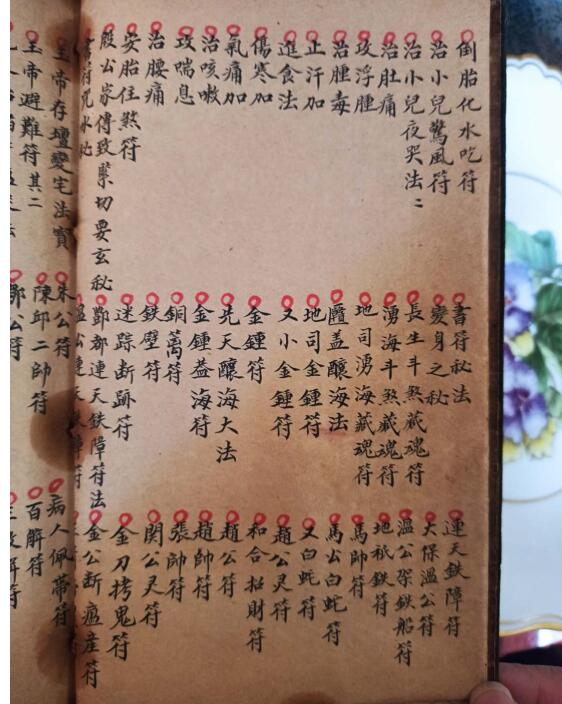 倒胎化水吃符
治小兒驚風符
治小兒夜哭法二
治肚痛
攻浮腫
治腫毒
止汗加
進食法
傷寒加
氣痛加
治咳嗽
攻喘息
治腰痛
安胎住煞符
殷公家傳致緊切要玄秘
書符咒水秘
書符秘法
變身之秘
長生斗煞藏魂符
湧海斗煞藏魂符
地司湧海藏魂符
盖釀海法
地司金鍾符
又小金鍾符
金鍾符
先天釀海大法
金鍾盖海符
銅符
鉄壁符
迷踪断跡符
酆都連天鉄障符法
温公連天鉄障符
連天鉄障符
大保温公符
温公架鉄船符
地祇鉄符
馬帥符
馬公白蛇符
又白蛇符
趙公灵符
和合招財符
趙公符
趙帥符
張帥符
関公灵符
金刀拷鬼符
金公断瘟産符
玉帝存壇變宅法寶
玉帝避難符其二
朱公符
陳邱二帥符
鄧公符
病人佩帶符
百解符